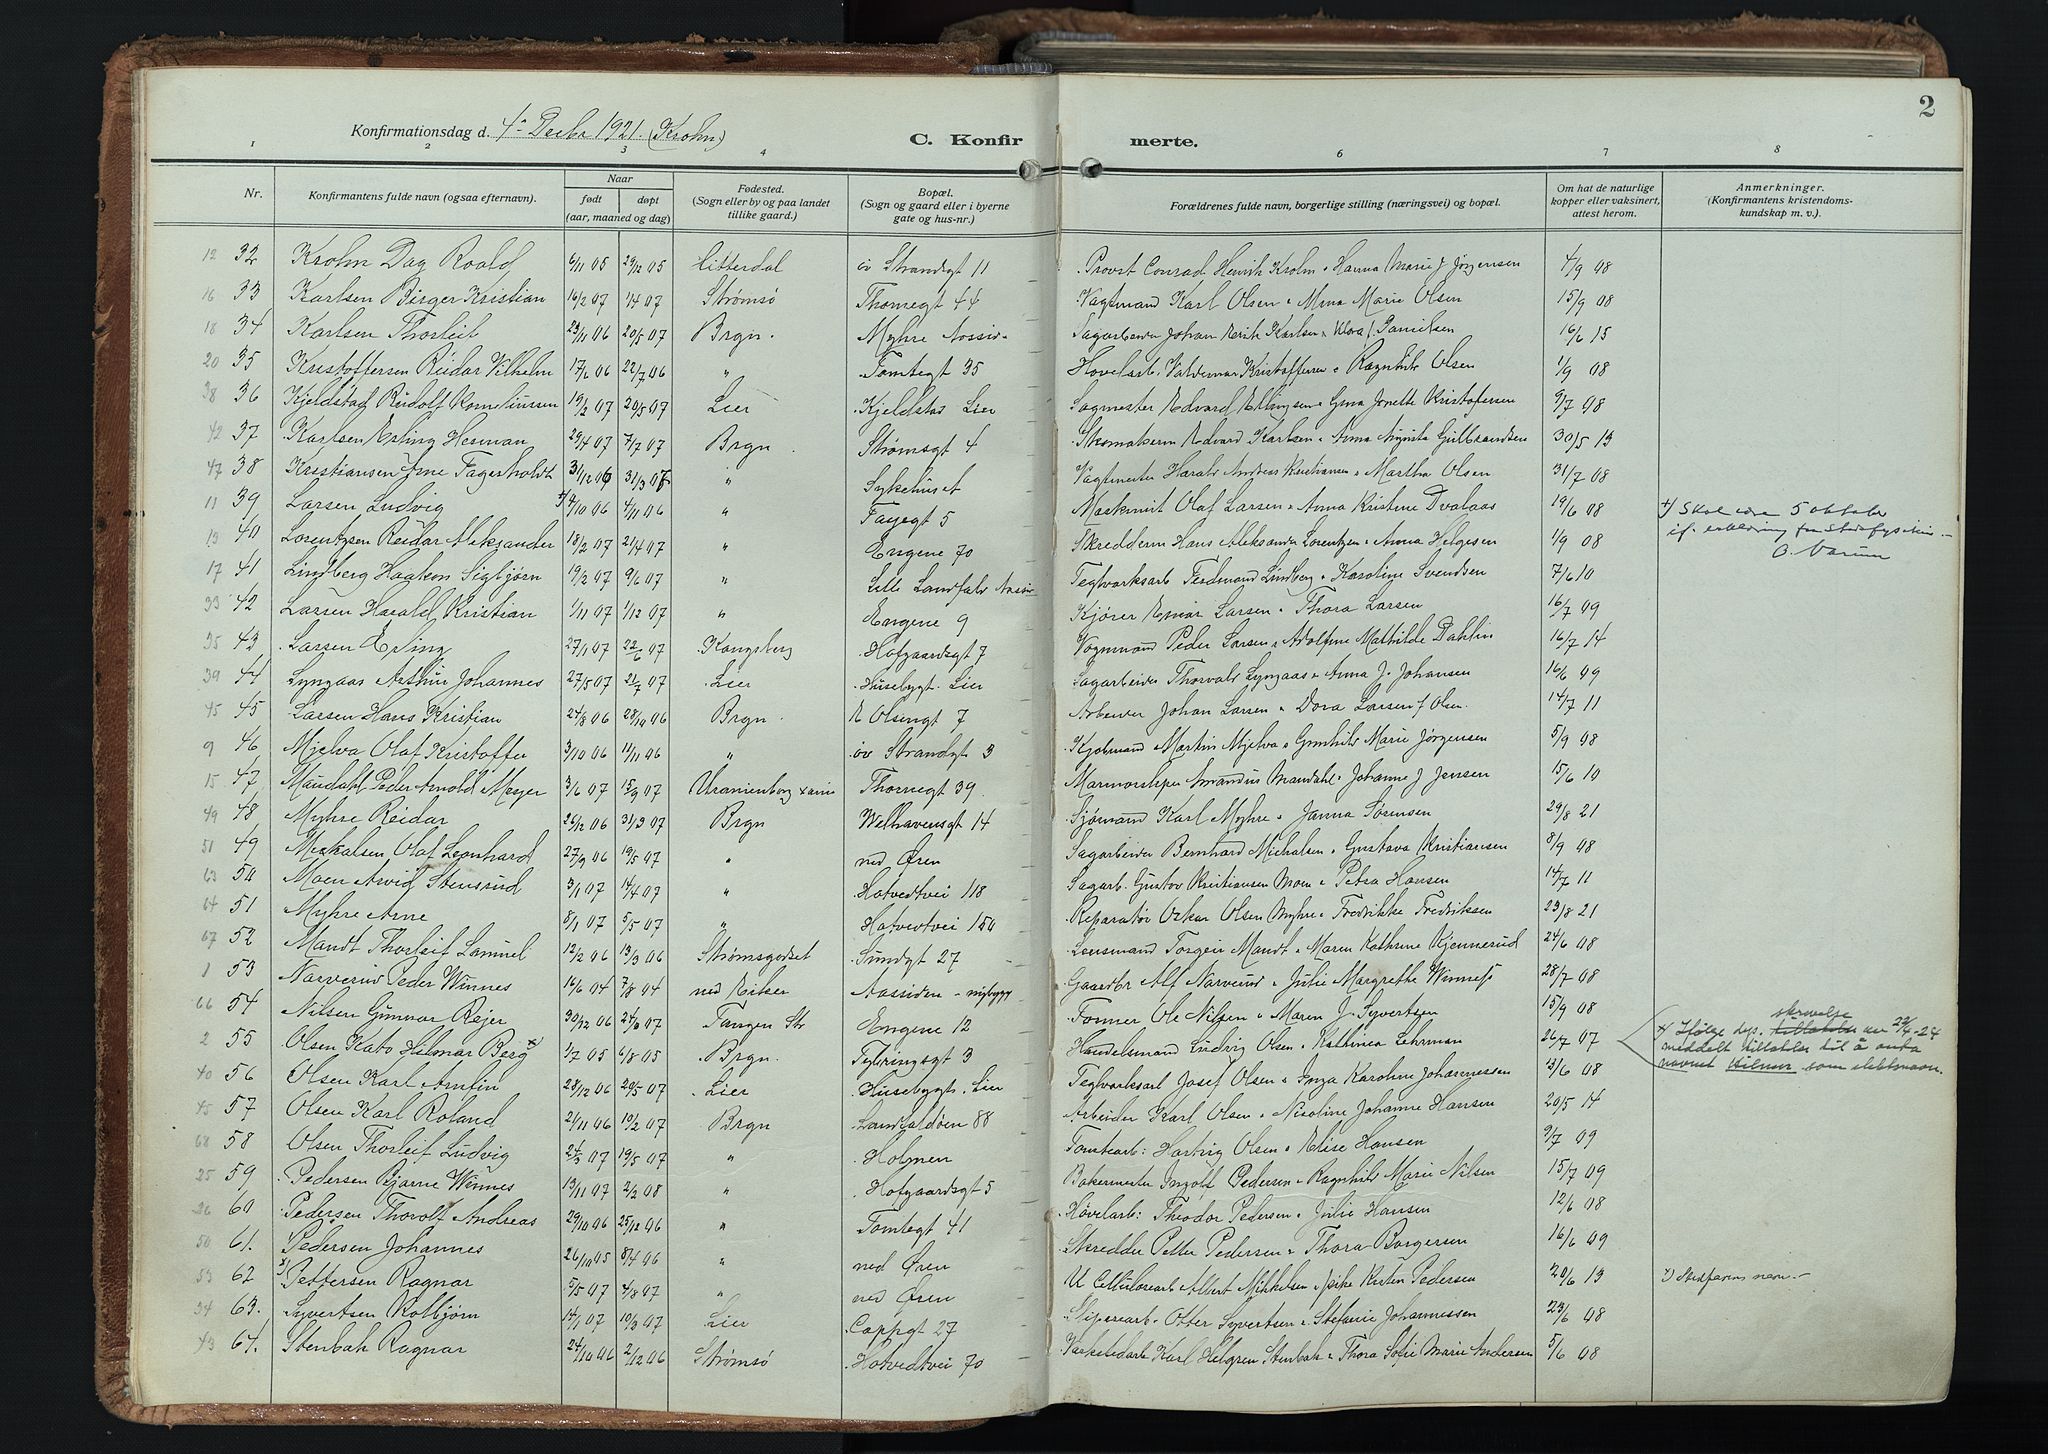 2
Konfirmationsdag d. 4de Decbr 1921. (Krohn)
C. Konfirmerte.
1 2 3 4 5 6 7 8
Nr. Konfirmantens fulde navn (ogsaa efternavn). Naar født døpt (aar, maaned og dag) Fødested. (Sogn eller by og paa landet tillike gaard.) Bopæl. (Sogn og gaard eller i byerne gate og hus-nr.) Forældrenes fulde navn, borgerlige stilling (næringsvei) og bopæl. Om hat de naturlige kopper eller vaksinert, attest herom. Anmerkninger. (Konfirmantens kristendomskundskap m. v.).
12 32 Krohn Dag Roald 6/11 05 29/12 05 Hitterdal øv Strandgt 11 Provst Conrad Henrik Krohn o Hanna Marie J Jørgensen 4/9 08
16 33 Karlsen Birger Kristian 16/2 07 1/4 07 Strømsø Thornegt 44 Vagtmand Karl Olsen o Marie Olsen 15/9 08
18 34 Karlsen Thorleif 23/11 06 20/5 07 Brgn. Myhre Aassid. Sagarbeider Johan Karlsen o Klara Danielsen 16/6 15
20 35 Kristoffersen Reidar Vilhelm 17/6 06 22/7 06 " Tomtegt 35 Høvelarb. Valdemar Kristoffersen o Ragnhild Olsen 1/9 08
38 36 Kjeldstad Reidolf Korneliussen 19/2 07 20/5 07 Lier Kjeldstad Lier Sagmester Edvard Ellingsen o Gina Jonette Kristofersen 9/7 08
42 37 Karlsen Erling Herman 29/4 07 7/7 07 Brgn Strømsgt 4 Skomakerm Edvard Karlsen o Anna Augusta Gulbrandsen 30/5 13
47 38 Kristiansen Arne Fagerholdt 31/12 06 31/3 07 " Sykehuset Vagtmester Harald Andreas Kristiansen o Martha Olsen 31/7 08
11 39 Larsen Ludvig x) 4/10 06 4/11 06 " Fayegt 5 Maskinist Olaf Larsen o Anna Kristine Dvalaas 19/6 08 x) Skal være 5 oktober
13 40 Lorentzen Reidar Aleksander 18/2 07 21/4 07 " Engene 70 Skredderm Hans Aleksander Lorentzen o Anna Helgesen 1/9 08
17 41 Lindberg Haakon Sigbjørn 19/2 07 9/6 07 " Lille Landfald Aassid Teglverksarb Ferdinand Lindberg o Karoline Svendsen 7/6 10
33 42 Larsen Harald Kristian 1/11 07 1/12 07 " Engene 9 Kjører Einar Larsen o Thora Larsen 16/7 09
35 43 Larsen Erling 27/1 07 22/6 07 Kongsberg Hofgaardsgt 7 Vognmand Peder Larsen o Adolfine Mathilde Dahlin 16/7 14
39 44 Lyngaas Arthur Johannes 27/5 07 21/7 07 Lier Husebygt. Lier Sagarbeider Thorvald Lyngaas o Anna J. Johansen 16/6 09
45 45 Larsen Hans Kristian 24/8 06 28/10 06 Brgn. E Olsengt 7 Arbeider Johan Larsen o Dora Larsen f Olsen 14/7 11
9 46 Mjelva Olaf Kristoffer 3/10 06 11/11 06 " øv Strandgt 3 Martin Mjelva o Gunhild Marie Jørgensen 5/9 08
15 47 Maudahl Peder Arnold Meyer 3/6 07 15/9 07 Uranienborg Thornegt 39 Amandus Maudahl o Johanne J Jensen 15/6 10
49 48 Myhre Reidar 26/12 06 31/3 07 Brgn Welhavensgt 14 Sjømand Karl Myhre o Janna Sørensen 29/8 21
51 49 Mickalsen Olaf Leonhard 27/9 06 19/5 07 " ned Øren Sagarbeider Bernhard Mickalsen o Gustava Kristiansen 8/9 08
63 50 Moen Arvid Stensrud 3/1 07 14/4 07 " Hotvedtvei 118 Sagarb. Gustov Kristiansen Moen o Petra Hansen 14/7 11
64 51 Myhre Arne 8/1 07 5/5 07 " Hotvedtvei 150 Reparatør Oskar Olsen Myhre o Fredrikke Fredriksen 23/8 21
67 52 Mandt Thorleif Samuel 12/2 06 13/3 06 Strømsgodset Sundgt 27 Lensmand Torgeir Mandt o Maren Kathrine Kjennerud 24/6 08
1 53 Narverud Peder Winnes 16/6 04 7/8 04 ned Eiker Aassiden - nybygg Gaardbr Alf Narverud o Julie Margrethe Winnes 28/7 08
66 54 Nilsen Gunnar Rejer 30/12 06 24/3 07 Tangen Str Engene 12 Former Ole Nilsen o Maren J. Syvertsen 15/9 08
2 55 Olsen Kato Hilmar Berg x) 1/7 05 6/8 05 Brgn. Handelsmand Ludvig Olsen o Kathinca Lehrman 26/7 07 x) Ifølge dep. skrivelse av -24
meddelt tillatelse til å anta
navnet som slektsnavn.
40 56 Olsen Karl Arnfin 28/12 06 20/5 07 Lier Husebygt. Lier Teglverksarb Josef Olsen o Inga Karoline Johannessen 13/6 08
45 57 Olsen Karl Roland 21/11 06 10/2 07 Brgn Landfaldøen 88 Arbeider Karl Olsen o Nicoline Johanne Hansen 20/5 14
68 58 Olsen Thorleif Ludvig 24/3 07 19/5 07 " Holmen Tomtearb: Hartvig Olsen o Elise Hansen 9/7 09
25 59 Pedersen Bjarne Winnes 13/11 07 2/2 08 " Hofgaardsgt 5 Bakermester Ingolf Pedersen o Ragnhild Marie Nilsen 15/7 09
26 60 Pedersen Thorolf Andreas 29/10 06 25/12 06 " Tomtegt 41 Høvelarb: Theodor Pedersen o Julie Hansen 12/6 08
50 61. Pedersen Johannes 26/10 05 8/4 06 " ned Øren Skredder Petter Pedersen o Thora Borgersen 16/6 09
53 62 x) Pettersen Ragnar 5/5 07 4/8 07 " ned Øren U Cellulosearb Albert Mikkelsen o Kirsten Pedersen 20/6 13 x) Stedfarens navn.
34 63. Syvertsen Kolbjørn 14/1 07 10/3 07 Lier Cappgt 27 Sliperiarb. Otter Syvertsen o Stefanie Johannessen 23/6 08
43 64. Stenbak Ragnar 24/10 06 2/12 06 Strømsø Hotvedtvei 70 Karl Helgren Stenbak o Thora Sofie Marie Andersen 5/6 08